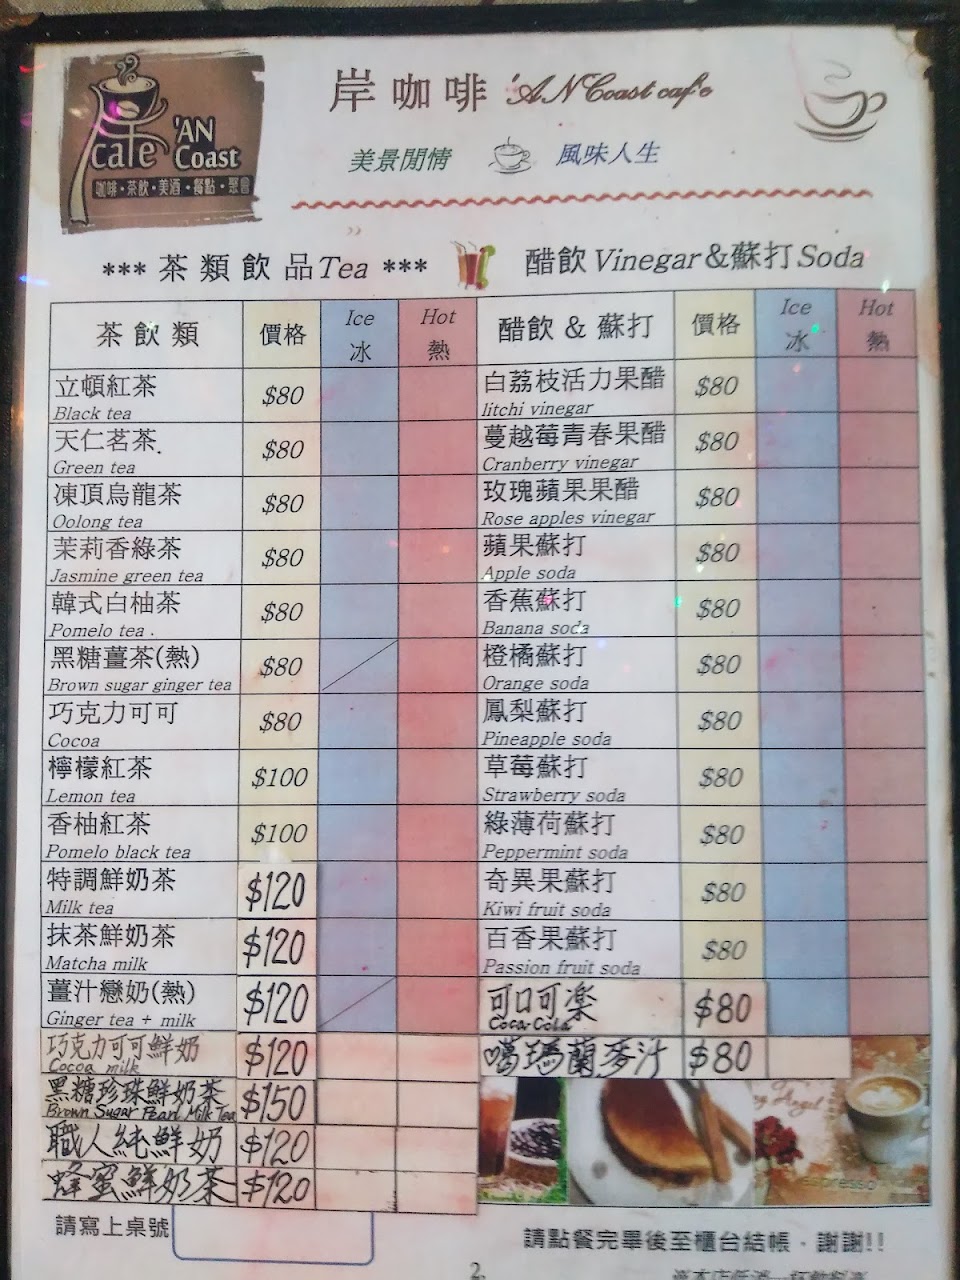 岸咖啡 'AN Coast caf'e
cafe 'AN Coast
咖啡・茶飲・美酒・餐點・聚會
美景閒情 風味人生
*** 茶類飲品Tea *** 醋飲Vinegar&蘇打Soda
茶飲類 價格 Ice 冰 Hot 熱 醋飲 & 蘇打 價格 Ice 冰 Hot 熱
立頓紅茶 $80
Black tea
天仁茗茶. $80
Green tea
凍頂烏龍茶 $80
Oolong tea
茉莉香綠茶 $80
Jasmine green tea
韓式白柚茶 $80
Pomelo tea .
黑糖薑茶(熱) $80
Brown sugar ginger tea
巧克力可可 $80
Cocoa
檸檬紅茶 $100
Lemon tea
香柚紅茶 $100
Pomelo black tea
特調鮮奶茶 $120
Milk tea
抹茶鮮奶茶 $120
Matcha milk
薑汁戀奶(熱) $120
Ginger tea + milk
巧克力可可鮮奶 $120
Cocoa milk
黑糖珍珠鮮奶茶 $150
Brown Sugar Pearl Milk Tea
職人純鮮奶 $120
蜂蜜鮮奶茶 $120
白荔枝活力果醋 $80
litchi vinegar
蔓越莓青春果醋 $80
Cranberry vinegar
玫瑰蘋果果醋 $80
Rose apples vinegar
蘋果蘇打 $80
Apple soda
香蕉蘇打 $80
Banana soda
橙橘蘇打 $80
Orange soda
鳳梨蘇打 $80
Pineapple soda
草莓蘇打 $80
Strawberry soda
綠薄荷蘇打 $80
Peppermint soda
奇異果蘇打 $80
Kiwi fruit soda
百香果蘇打 $80
Passion fruit soda
可口可楽 $80
Coca-Cola
♡噶瑪蘭麥汁 $80
Angel
espresso
請寫上桌號
請點餐完畢後至櫃台結帳．謝謝!!
2.